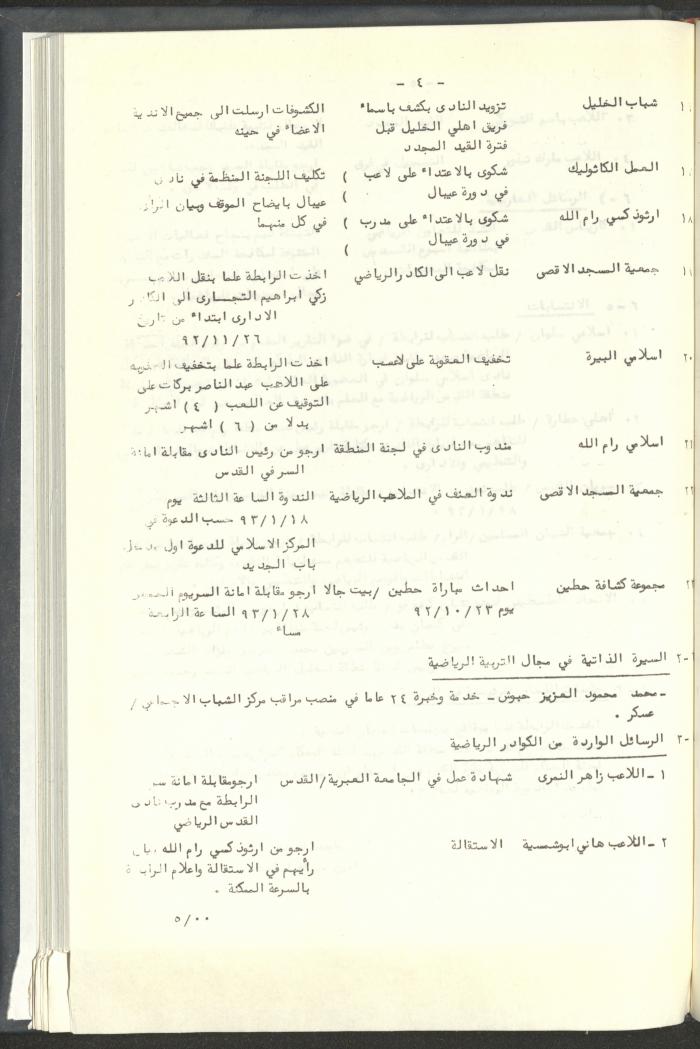 - ٤ -
شباب الخليل تزويد النادى بكشف باسماء الكشوفات ارسلت الى جميع الاندية
فريق اهلي الخليل قبل الاعضاء في حينه
فترة القيد المجدد
العمل الكاثوليك شكوى بالاعتداء على لاعب ) تكليف اللجنة المنظمة في نادى
في دورة عيبال ) عيبال بايضاح الموقف وبيان
١٨ ارثوذكسي رام الله شكوى بالاعتداء على مدرب ) في كل منهما
في دورة عيبال )
جمعية المسجد الاقصى نقل لاعب الى الكادر الرياضي اخذت الرابطة علما بنقل اللاعب
زكي ابراهيم التجارى الى الكادر
الادارى ابتداء من تاريخ
٩٢/١١/٢٦
٢٠ اسلامي البيرة تخفيف العقوبة على لاعب اخذت الرابطة علما بتخفيف العقوبة
على اللاعب عبد الناصر بركات على
التوقيف عن اللعب ( ٤ ) اشهر
بدلا من ( ٦ ) اشهر
٢١ اسلامي رام الله مندوب النادى في لجنة المنطقة ارجو من رئيس النادى مقابلة امانة
السر في القدس
٢٢ جمعية المسجد الاقصى ندوة العنف في الملاعب الرياضية الندوة الساعة الثالثة يوم
٩٣/١/١٨ حسب الدعوة في
المركز الاسلامي للدعوة اول مدخل
باب الجديد
مجموعة كشافة حطين احداث مباراة حطين /بيت جالا ارجو مقابلة امانة السر يوم الخميس
يوم ٩٢/١٠/٢٣ ٩٣/١/٢٨ الساعة الرابعة
مساء
٢- السيرة الذاتية في مجال التربية الرياضية
- محمد محمود العزيز حبوش - خدمة وخبرة ٢٤ عاما في منصب مراقب مركز الشباب الاجتماعي /
عسكر .
٣- الرسائل الواردة من الكوادر الرياضية
١ - اللاعب زاهر النمرى شهادة عمل في الجامعة العبرية/القدس ارجو مقابلة امانة سر
الرابطة مع مدرب نادى
القدس الرياضي
٢ - اللاعب هاني ابوشمسية الاستقالة ارجو من ارثوذكسي رام الله بيان
رأيهم في الاستقالة واعلام الرابطة
بالسرعة الممكنة .
٥/٠٠